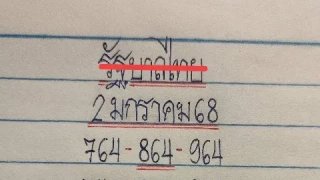 รัฐบาลไทย
2 มกราคม 68
764 - 864 - 964